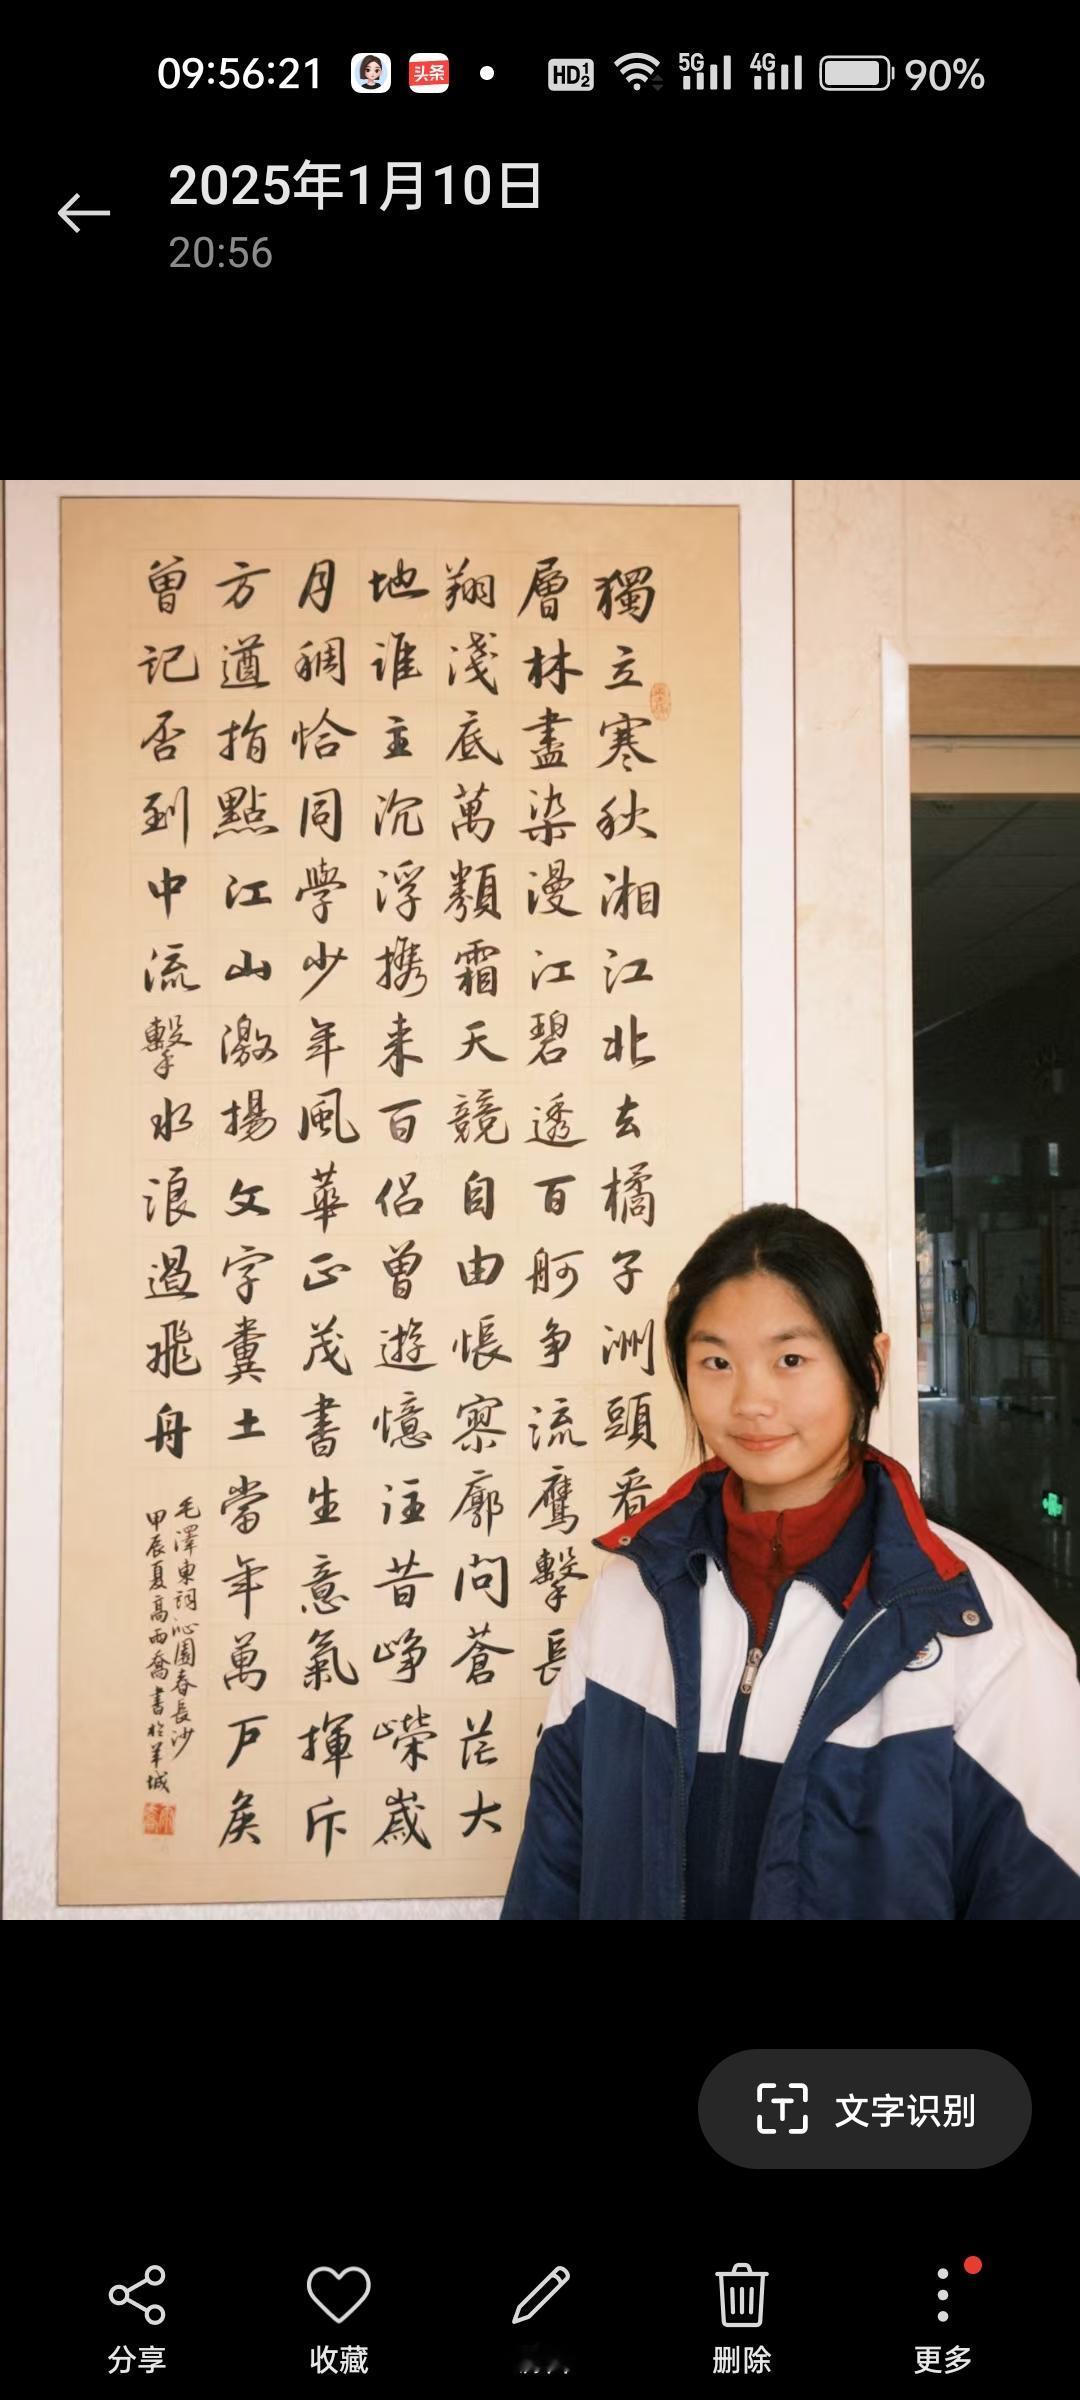 09:56:21 头条 HD 1 2 5G 4G 90%
2025年1月10日
20:56
獨立寒秋湘江北去橘子洲頭看
層林盡染漫江碧透百舸争流鷹擊長
翔淺底萬類霜天競自由悵寥廓問蒼茫大
地誰主沉浮攜来百侣曾遊憶往昔崢嶸歲
月稠恰同學少年風華正茂書生意氣揮斥
方遒指點江山激揚文字糞土當年萬户矦
曾記否到中流擊水浪遏飛舟
毛澤東詞沁園春長沙
甲辰夏高雨喬書於羊城
文字识别
分享
收藏
删除
更多